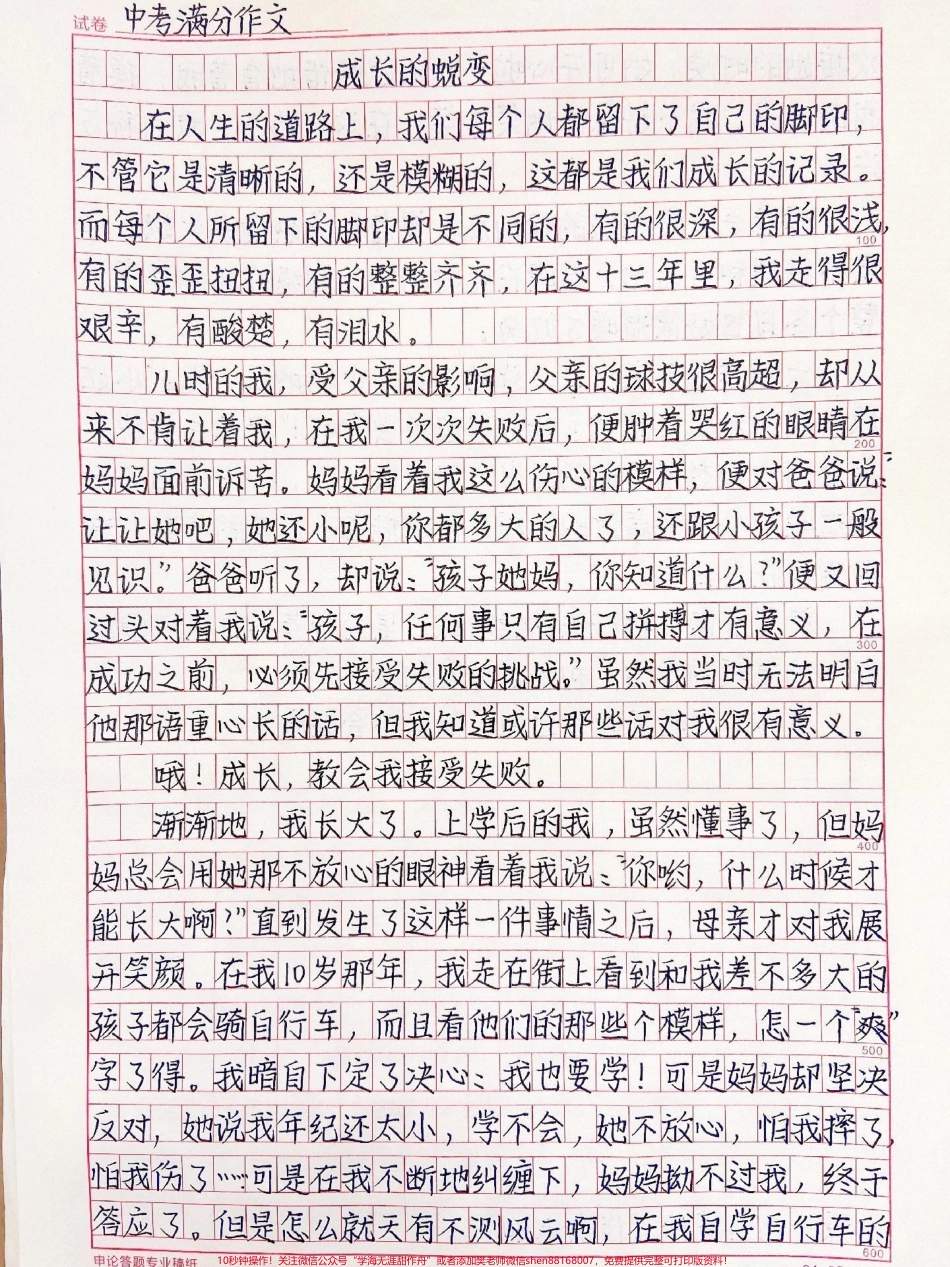 试卷 中考满分作文
成长的蜕变
在人生的道路上，我们每个人都留下了自己的脚印，
不管它是清晰的，还是模糊的，这都是我们成长的记录。
而每个人所留下的脚印却是不同的，有的很深，有的很浅，
100
有的歪歪扭扭，有的整整齐齐，在这十三年里，我走得很
艰辛，有酸楚，有泪水。
儿时的我，受父亲的影响，父亲的球技很高超，却从
来不肯让着我，在我一次次失败后，便肿着哭红的眼睛在
200
妈妈面前诉苦。妈妈看着我这么伤心的模样，便对爸爸说：“
让让她吧，她还小呢，你都多大的人了，还跟小孩子一般
见识。”爸爸听了，却说：“孩子她妈，你知道什么？”便又回
过头对着我说：“孩子，任何事只有自己拼搏才有意义，在
300
成功之前，必须先接受失败的挑战。”虽然我当时无法明白
他那语重心长的话，但我知道或许那些话对我很有意义。
哦！成长，教会我接受失败。
渐渐地，我长大了。上学后的我，虽然懂事了，但妈
400
妈总会用她那不放心的眼神看着我说：“你哟，什么时候才
能长大啊？”直到发生了这样一件事情之后，母亲才对我展
开笑颜。在我10岁那年，我走在街上看到和我差不多大的
孩子都会骑自行车，而且看他们的那些个模样，怎一个“爽”
500
字了得。我暗自下定了决心：我也要学！可是妈妈却坚决
反对，她说我年纪还太小，学不会，她不放心，怕我摔了，
怕我伤了……可是在我不断地纠缠下，妈妈拗不过我，终于
答应了。但是怎么就天有不测风云啊，在我自学自行车的
600
申论答题专业稿纸 10秒钟操作！关注微信公众号“学海无涯甜作舟”或者添加樊老师微信shen88168007，免费提供完整可打印版资料！